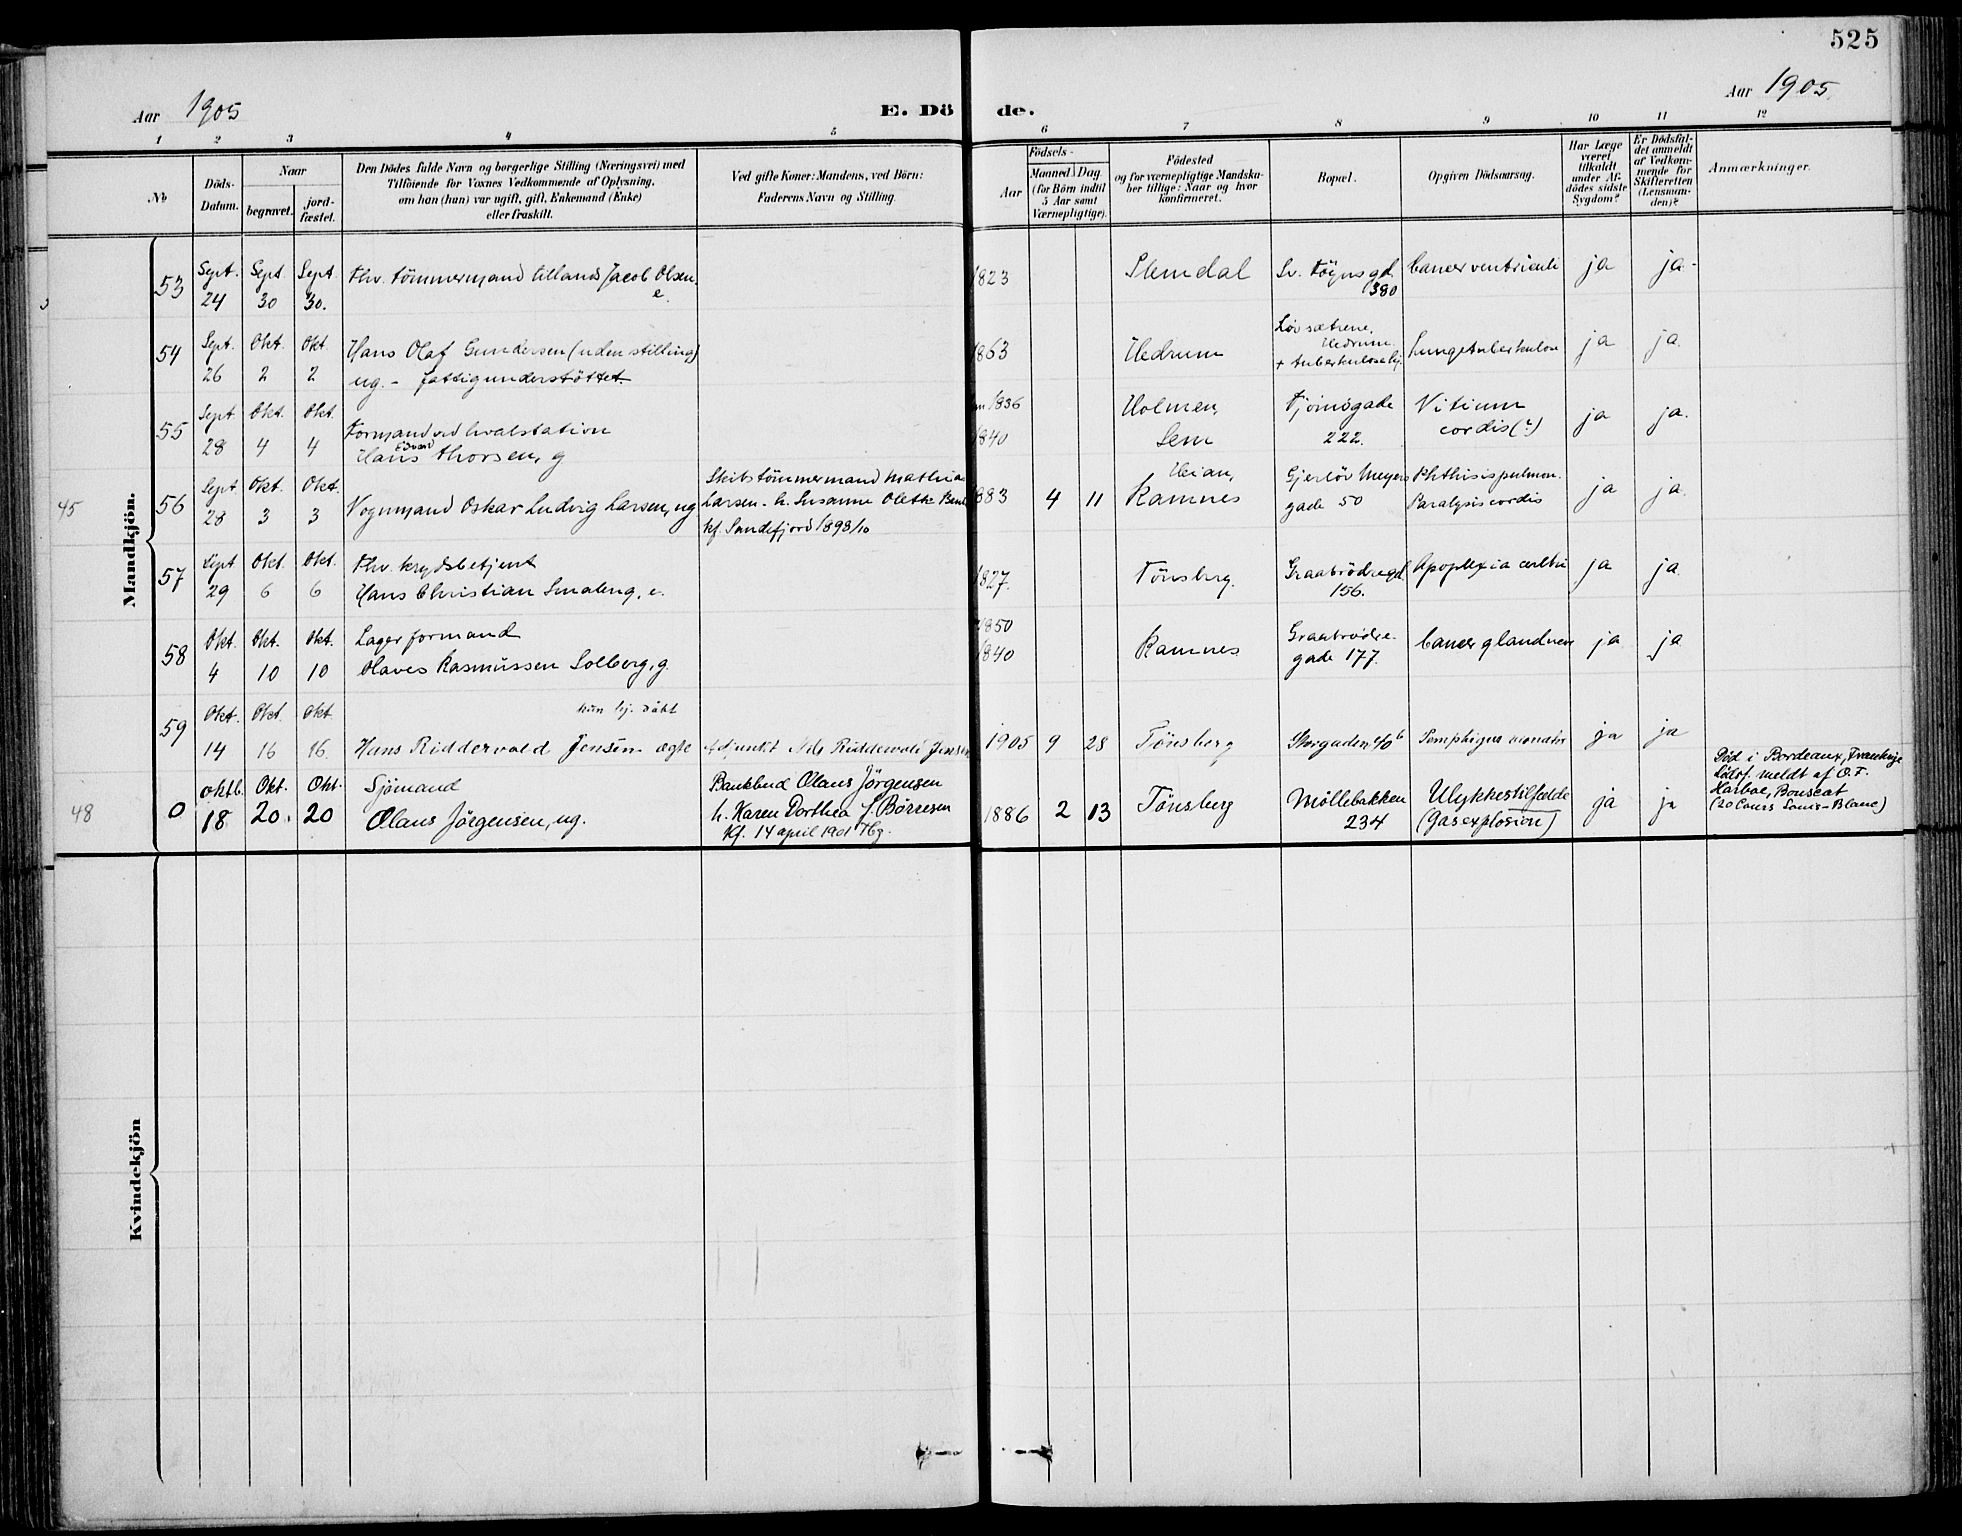 525
Aar 1905
E. Döde.
Aar 1905.
1 2 3 4 5 6 7 8 9 10 11 12
No
Döds-Datum.
Naar
begravet.
jordfæstet.
Den Dödes fulde Navn og borgerlige Stilling (Næringsvei) med
Tilföiende for Voxnes Vedkommende af Oplysning,
om han (hun) var ugift, gift, Enkemand (Enke)
eller fraskilt.
Ved gifte Koner: Mandens, ved Börn:
Faderens Navn og Stilling.
Födsels-
Aar
Maaned Dag
(for Börn indtil
5 Aar samt
Værnepligtige).
Födested
og for værnepligtige Mandska-
ber tillige: Naar og hvor
konfirmeret.
Bopæl.
Opgiven Dödsaarsag.
Har Læge
været
tilkaldt
under Af-
dödes sidste
Sygdom?
Er Dödsfal-
det anmeldt
af Vedkom-
mende for
Skifteretten
(Lensman-
den)?
Anmærkninger.
Mandkjön.
53 Sept. 24 Sept 30 Sept. 30. Fhv. tömmermand tillands Jacob Olsen e. 1823 Slemdal Sv. Föyns gd 380 Cancer ventriculi ja ja.
54 Sept. 26 Okt. 2 Okt. 2 Hans Olaf Gundersen (uden stilling)
ug. - fattigunderstöttet. 1863 Hedrum Lövsætrene, Hedrum + tuberkulosehj. Lungetuberkulose ja ja.
55 Sept 28 Okt. 4 Okt. 4 Formand ved hvalstation
Hans Edvard Thorsen, g 1836 1840 Holmen, Sem Tjömögade 222. Vitium cordis (?) ja ja.
45 56 Sept 28 Okt. 3 Okt. 3 Vognmand Oskar Ludvig Larsen, ug Skibstömmermand Mathias
Larsen. h. Susanne Olette
kf Sandefjord 1898/10 1883 4 11 Ramnes Gjerlöv Meyers gade 50 Phthisis pulmon. Paralysis cordis ja ja.
57 Sept 29 Okt. 6 Okt. 6 Fhv. krydsbetjent
Hans Christian Smaleng, e. 1827. Tönsberg. Graabrödregd. 156. Apoplexia cerebri ja ja.
58 Okt. 4 Okt. 10 Okt. 10 Lagerformand
Olaves Rasmussen Solberg, g. 1850 1840 Ramnes Graabrödre-gade 177. Cancer glandnen ja ja.
59 Okt. 14 Okt. 16 Okt 16. hun hj. döbt
Hans Riddervold Jensen ægte Adjunkt Nils Riddervold Jensen 1905 9 28 Tönsberg Storgaden 40 b Pemphigus neonator ja ja
48 0 oktb. 18 Okt. 20. Okt. 20 Sjömand
Olaus Jörgensen, ug. Bankbud Olaus Jörgensen
h. Karen Dorthea f. Børresen
Kf. 14 april 1901 Tbg. 1886 2 13 Tönsberg Møllebakken 234 Ulykkestilfælde (Gasexplosion) ja ja Död i Bordeaux, Frankrige
Dödsf. meldt af O.F.
Harboe, Bouscat
(20 Cours Louis-Blanc)
Kvindekjön